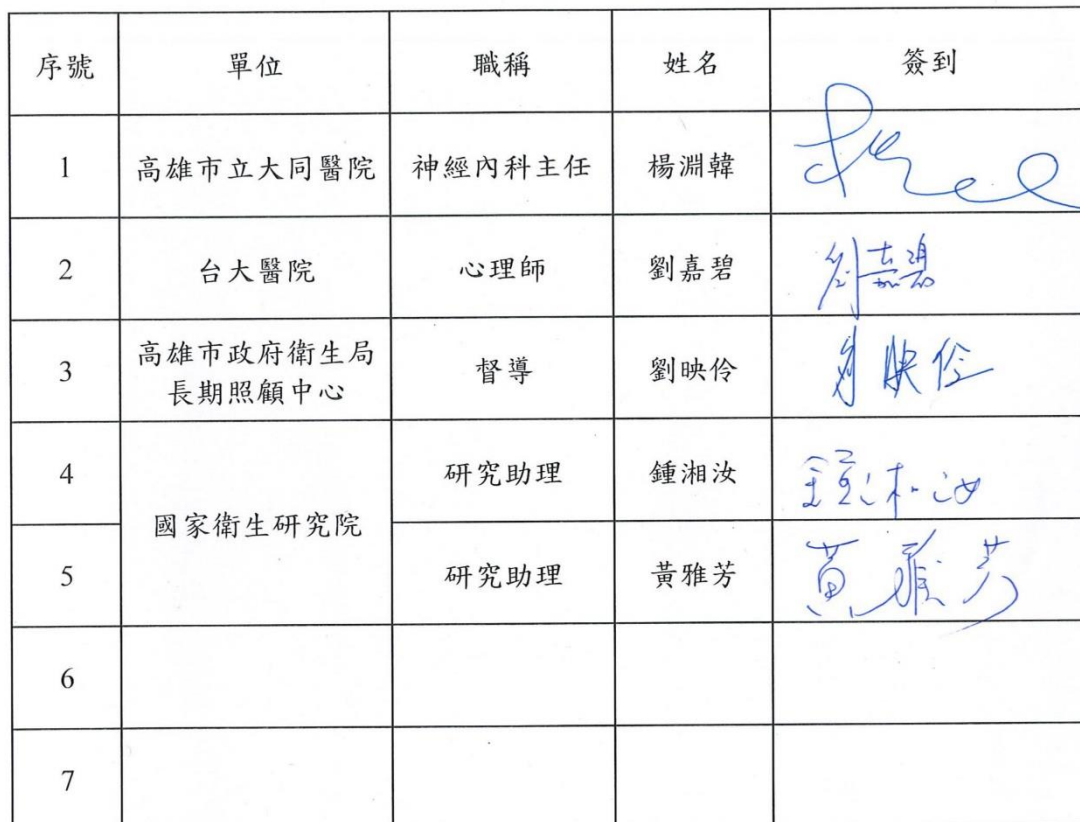 序號 單位 職稱 姓名 簽到
1 高雄市立大同醫院 神經內科主任 楊淵韓
2 台大醫院 心理師 劉嘉碧 劉嘉碧
3 高雄市政府衛生局 督導 劉映伶 劉映伶
長期照顧中心
4 研究助理 鍾湘汝 鍾湘汝
國家衛生研究院
5 研究助理 黃雅芳 黃雅芳
6
7